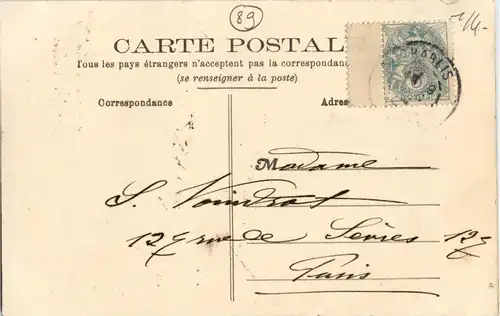 89
CARTE POSTALE
Tous les pays étrangers n'acceptent pas la correspondance
(se renseigner à la poste)
Correspondance Adresse
Madame
S. Voindrot
127 rue de Sèvres 127
Paris